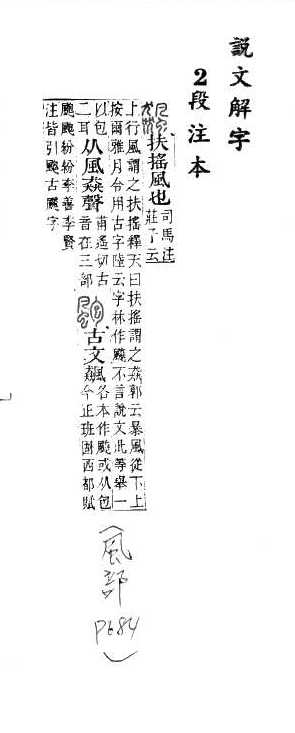 說文解字
2段注本
扶搖風也
司馬注
莊子云
上行風謂之扶搖釋天曰扶搖謂之猋郭云暴風從下上
按爾雅月令用古字陸云字林作飆不言說文此等舉一
以包
二耳
从風猋聲
甫遙切古
音在三部
古文飆
各本作颮或从包
今正班固西都賦
颮颮紛紛李善李賢
注皆引颮古飆字
(風部
P684)